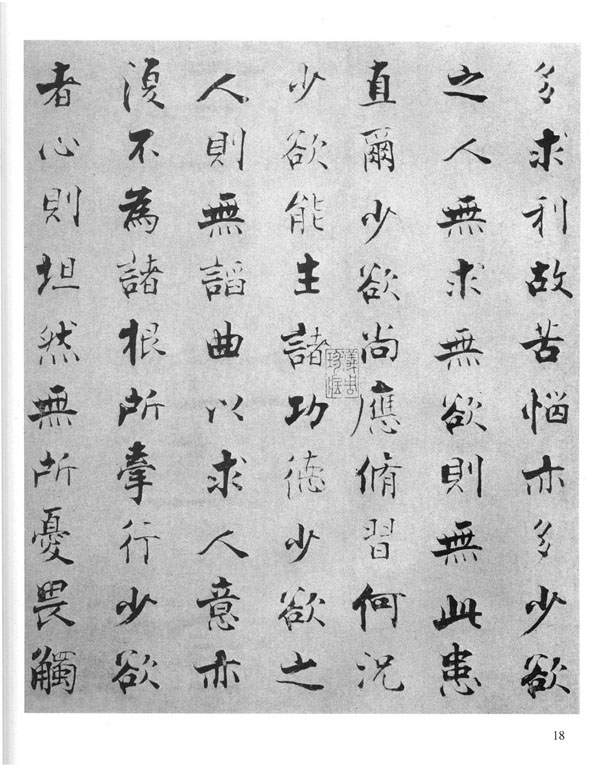 多求利故苦惱亦多少欲
之人無求無欲則無此患
直爾少欲尚應脩習何況
少欲能生諸功德少欲之
人則無諂曲以求人意亦
復不為諸根所牽行少欲
者心則坦然無所憂畏觸
18